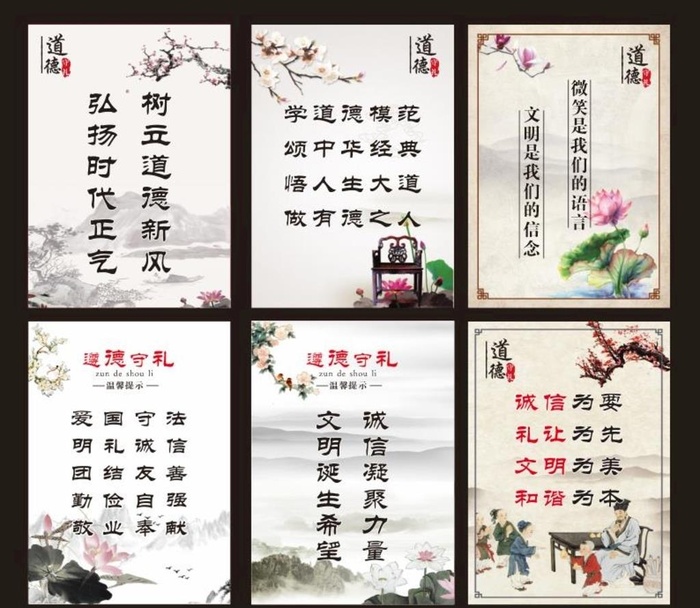 道德守礼
树立道德新风
弘扬时代正气
道德守礼
学道德模范
颂中华经典
悟人生大道
做有德之人
道德守礼
微笑是我们的语言
文明是我们的信念
道德守礼
zun de shou li
温馨提示
爱国守法
明礼诚信
团结友善
勤俭自强
敬业奉献
道德守礼
zun de shou li
温馨提示
诚信凝聚力量
文明诞生希望
道德守礼
诚信为要
礼让为先
文明为美
和谐为本